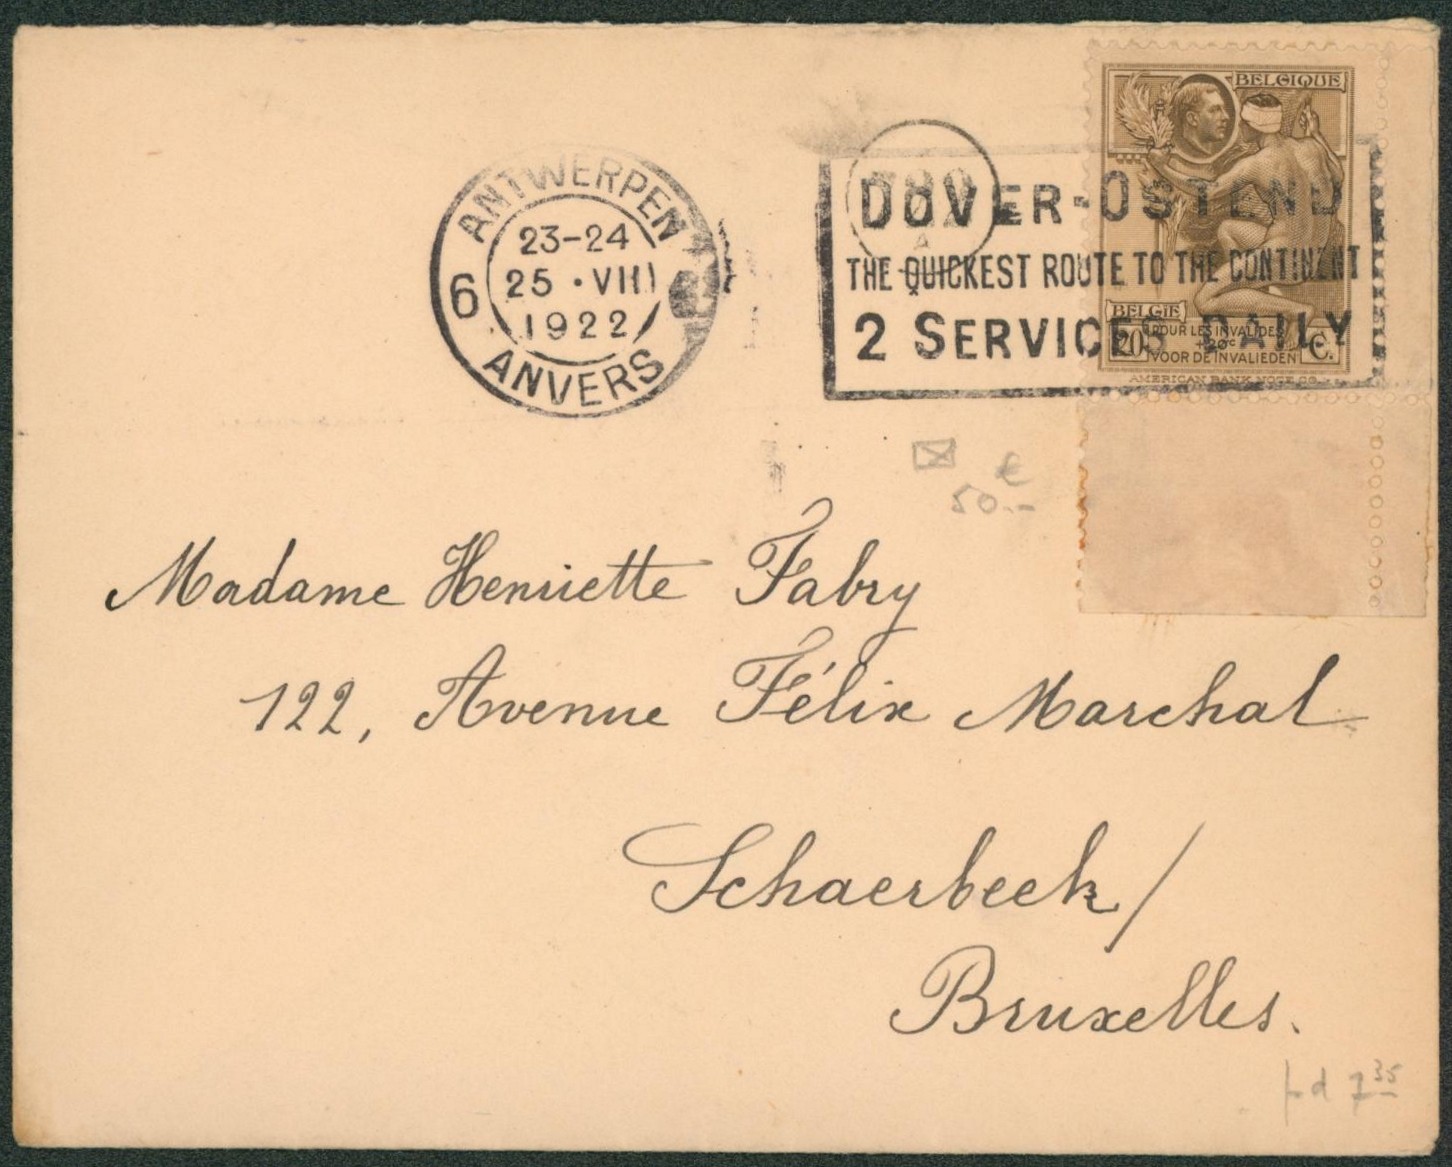 BELGIQUE
ANTWERPEN
23-24
25 · VIII
1922
6
ANVERS
DOVER-OSTEND
THE QUICKEST ROUTE TO THE CONTINENT
2 SERVICES DAILY
BELGIË
20 POUR LES INVALIDES C.
+20c
VOOR DE INVALIEDEN
AMERICAN BANK NOTE CO.
€
50.-
Madame Henriette Fabry
122, Avenue Félix Marchal
Schaerbeek/
Bruxelles.